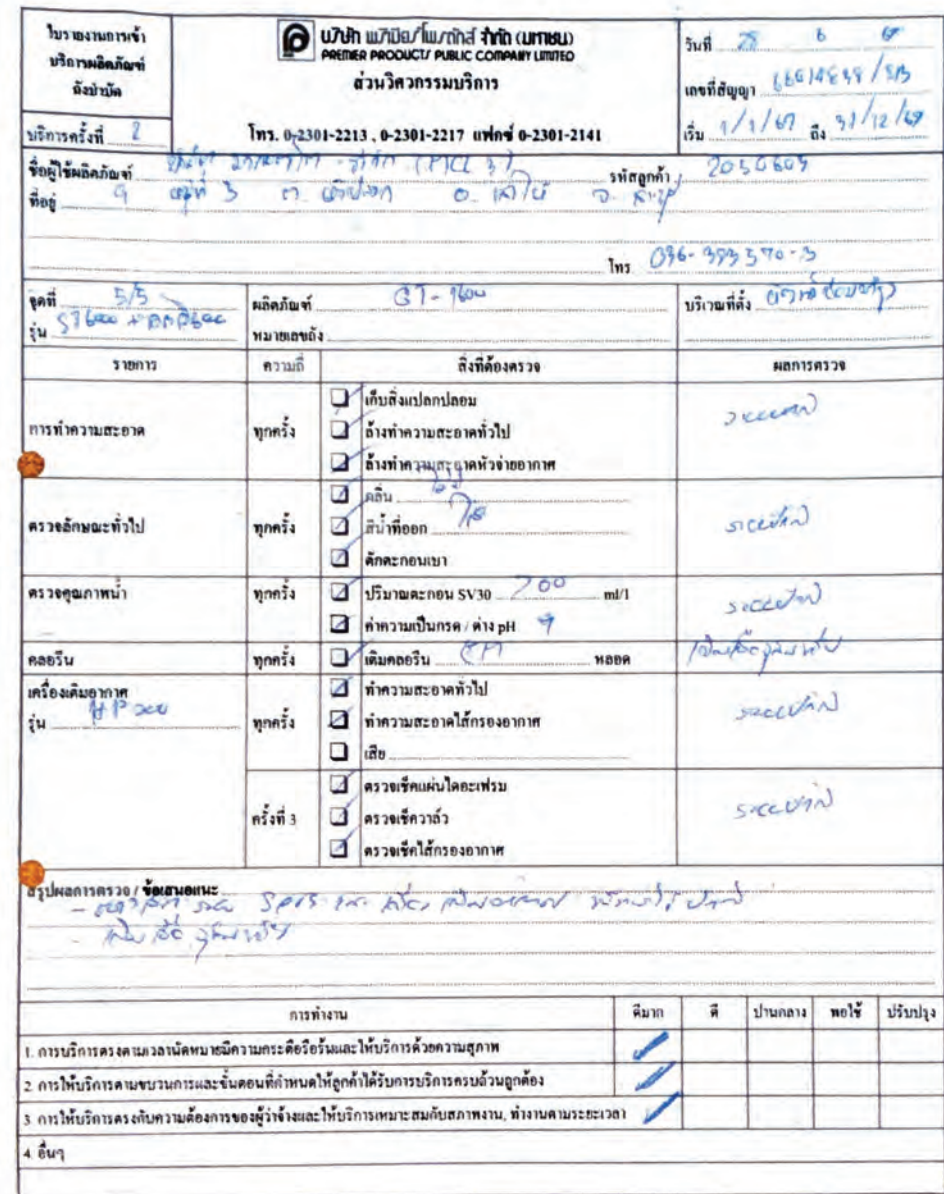 ใบรายงานการเข้า
บริการผลิตภัณฑ์
ถังบำบัด
บริการครั้งที่ 2
บริษัท พรีเมียร์โพรดักส์ จำกัด (มหาชน)
PREMIER PRODUCTS PUBLIC COMPANY LIMITED
ส่วนวิศวกรรมบริการ
โทร. 0-2301-2213 , 0-2301-2217 แฟกซ์ 0-2301-2141
วันที่ 6
เลขที่สัญญา
เริ่ม 1/1/67 ถึง 31/12/67
ชื่อผู้ใช้ผลิตภัณฑ์
รหัสลูกค้า 2050603
ที่อยู่ 9 หมู่ที่ 3 ต. อ. จ.
โทร 036-393570-3
จุดที่ 5/5
รุ่น
ผลิตภัณฑ์
หมายเลขถัง
บริเวณที่ตั้ง
รายการ ความถี่ สิ่งที่ต้องตรวจ ผลการตรวจ
การทำความสะอาด ทุกครั้ง
เก็บสิ่งแปลกปลอม
ล้างทำความสะอาดทั่วไป
ล้างทำความสะอาดหัวจ่ายอากาศ
ตรวจลักษณะทั่วไป ทุกครั้ง
กลิ่น
สีน้ำที่ออก ใส
ดักตะกอนเบา
ระบบปกติ
ตรวจคุณภาพน้ำ ทุกครั้ง
ปริมาณตะกอน SV30 700 ml/l
ค่าความเป็นกรด / ด่าง pH
ระบบปกติ
คลอรีน ทุกครั้ง เติมคลอรีน หลอด
เครื่องเติมอากาศ
รุ่น
ทุกครั้ง
ทำความสะอาดทั่วไป
ทำความสะอาดไส้กรองอากาศ
เสีย
ระบบปกติ
ครั้งที่ 3
ตรวจเช็คแผ่นไดอะเฟรม
ตรวจเช็ควาล์ว
ตรวจเช็คไส้กรองอากาศ
ระบบปกติ
สรุปผลการตรวจ / ข้อเสนอแนะ
การทำงาน ดีมาก ดี ปานกลาง พอใช้ ปรับปรุง
1. การบริการตรงตามเวลานัดหมายมีความกระตือรือร้นและให้บริการด้วยความสุภาพ
2. การให้บริการตามขบวนการและขั้นตอนที่กำหนดให้ลูกค้าได้รับการบริการครบถ้วนถูกต้อง
3. การให้บริการตรงกับความต้องการของผู้ว่าจ้างและให้บริการเหมาะสมกับสภาพงาน, ทำงานตามระยะเวลา
4. อื่นๆ